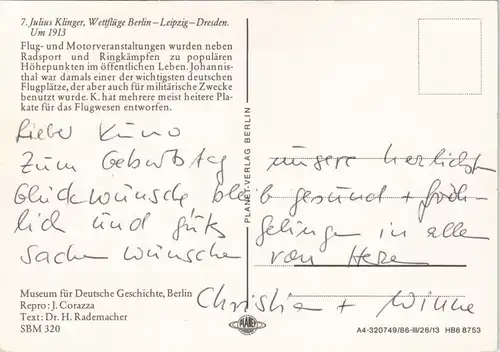 7. Julius Klinger, Wettflüge Berlin–Leipzig–Dresden.
Um 1913
Flug- und Motorveranstaltungen wurden neben
Radsport und Ringkämpfen zu populären
Höhepunkten im öffentlichen Leben. Johannis-
thal war damals einer der wichtigsten deutschen
Flugplätze, der aber auch für militärische Zwecke
benutzt wurde. K. hat mehrere meist heitere Pla-
kate für das Flugwesen entworfen.
Lieber Kuno
Zum Geburtstag unsere herzlichsten
Glückwünsche bleib gesund + fröh-
lich und gutes Gelingen in allen
Sachen wünschen von Herzen
Christian +
PLANET-VERLAG BERLIN
Museum für Deutsche Geschichte, Berlin
Repro: J. Corazza
Text: Dr. H. Rademacher
SBM 320
PLANET
A4-320749/86-III/26/13 HB6 8753